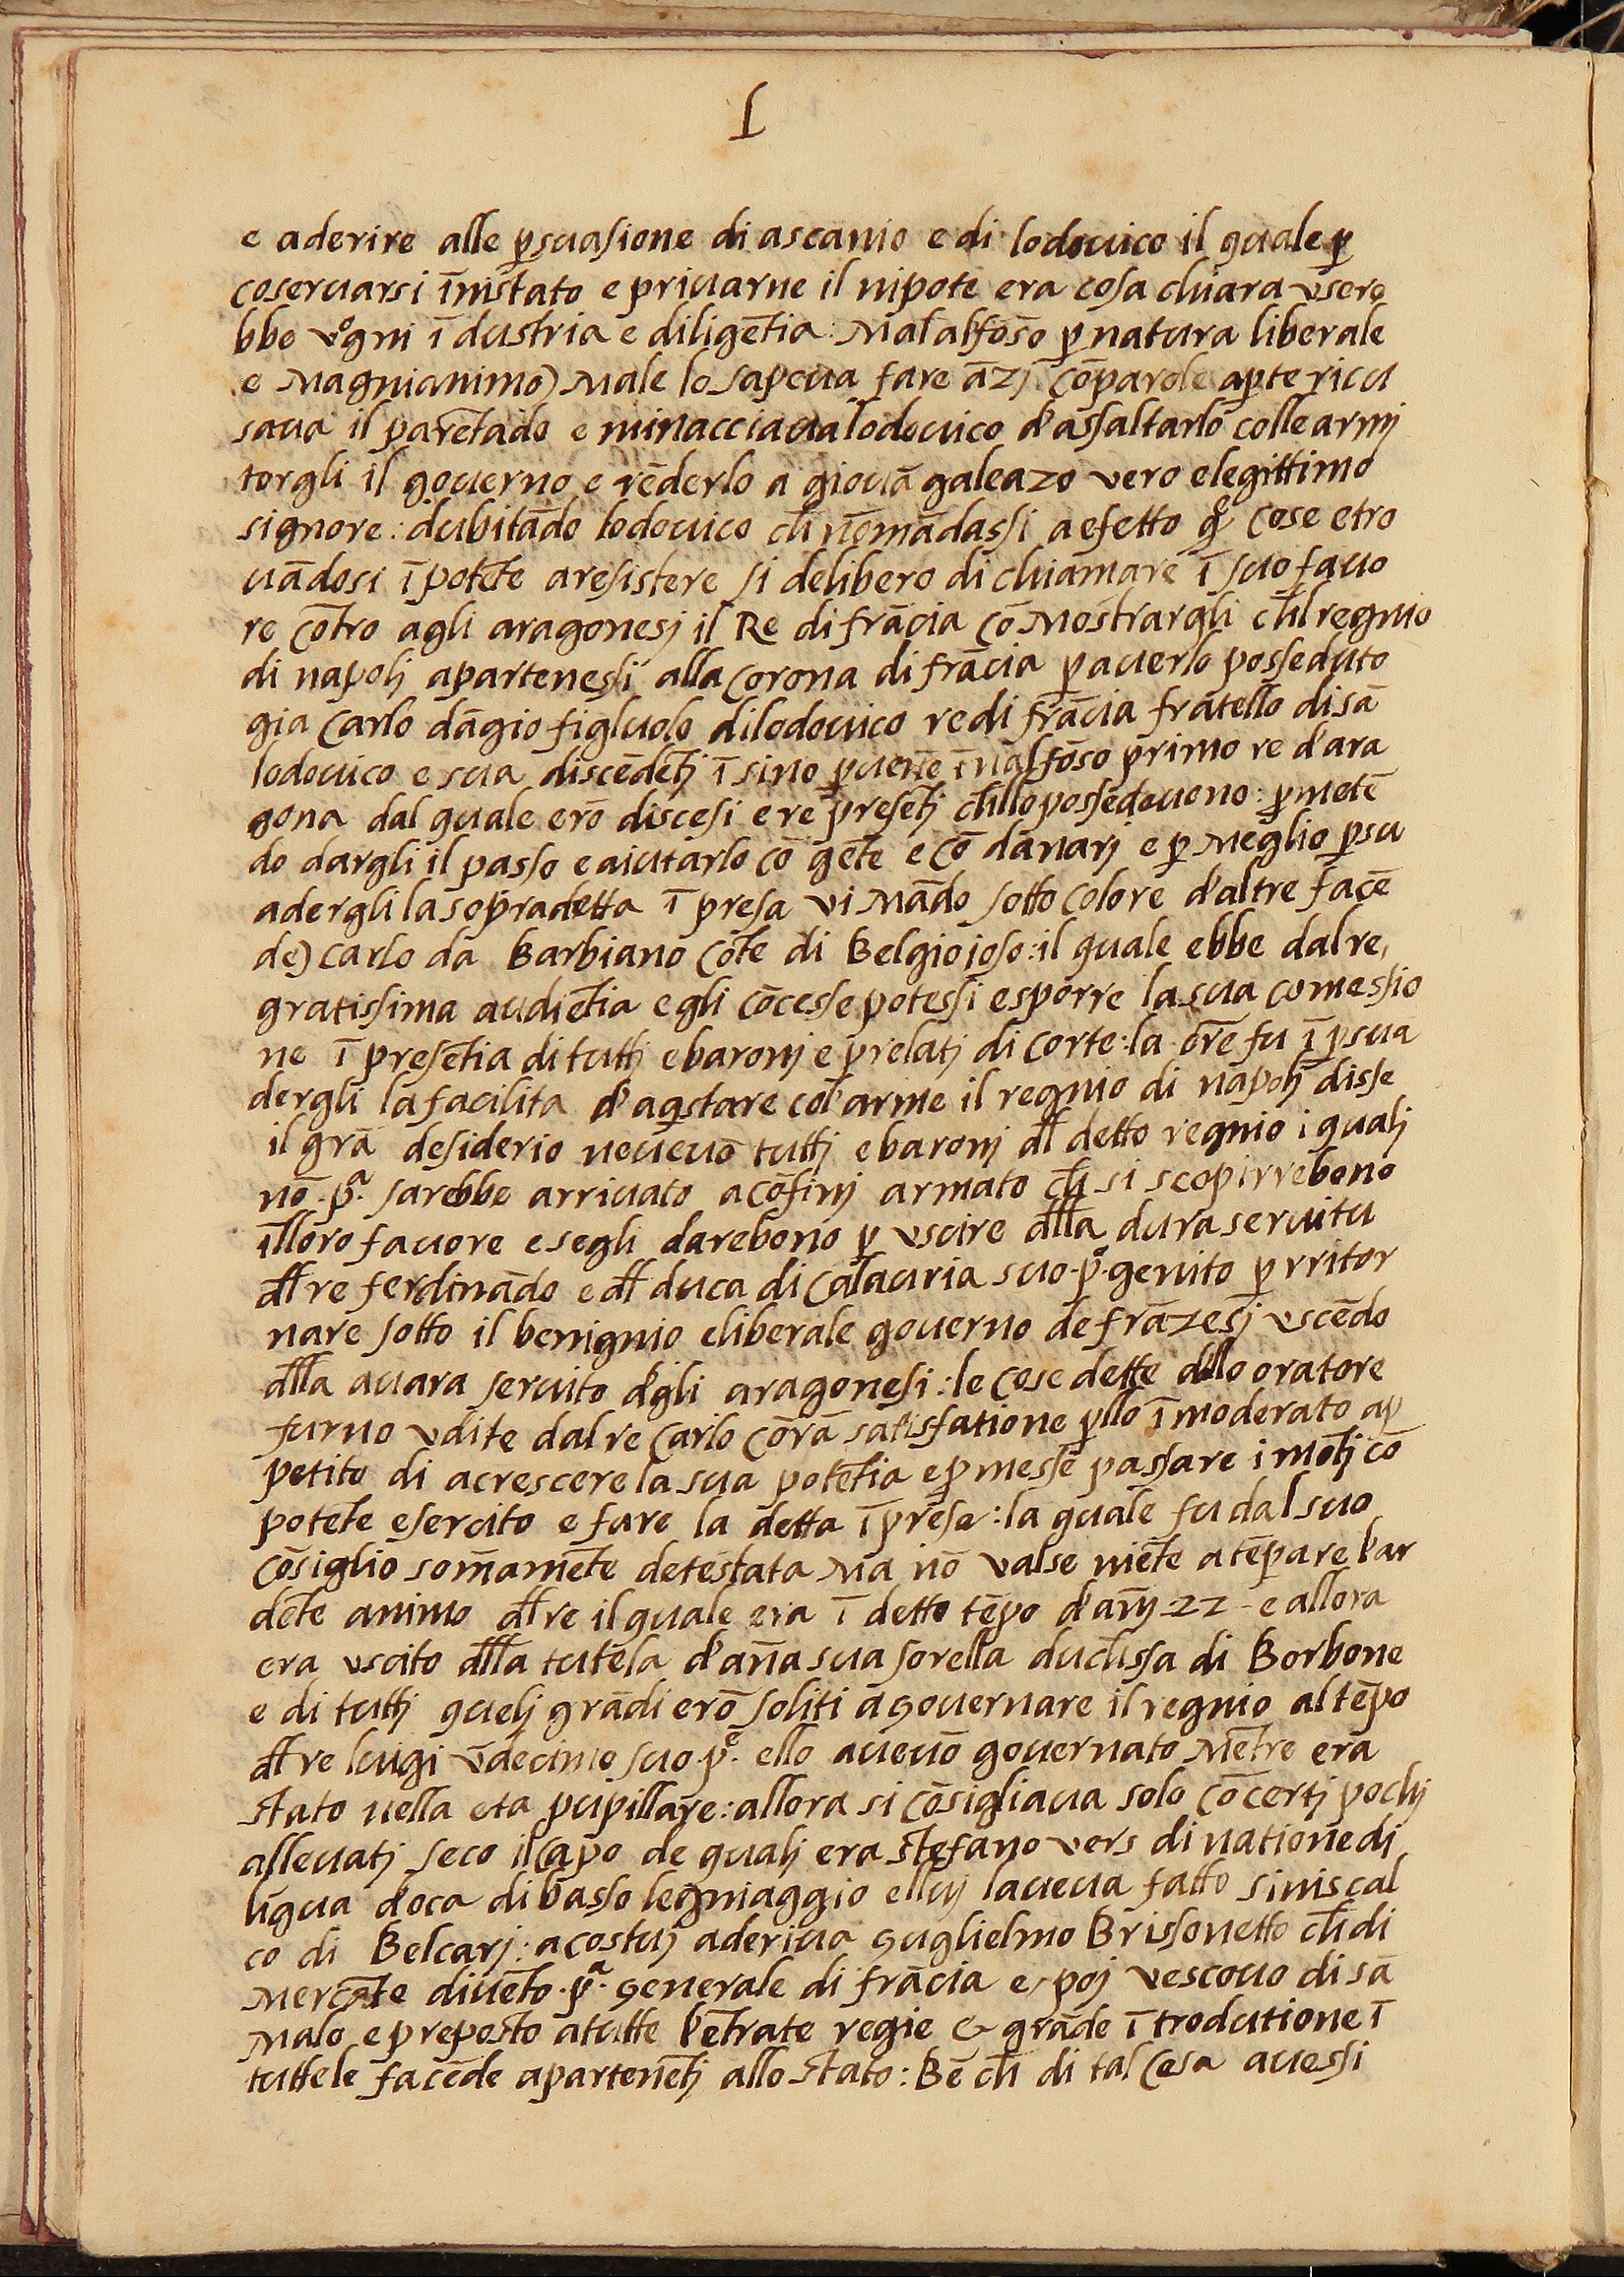 1
e aderire alle ꝑsuasione di ascanio e di lodouico il quale ꝑ
coseruarsi ī nistato e priuarne il nipote era cosa chiara vsere
bbe vᵒgni ī dustria e diligētia: Mal alfōso ꝑ natura liberale
e Magnianimo) Male lo sapeua fare āzj cō parole aꝑte ricu
saua il parētado e minacciaua lodouico d'assaltarlo colle armj
torgli il gouerno e rēderlo a giouā galeazo vero elegittimo
signore: dubitādo lodouico ch̄ nōmādassi a efetto qᵉ cose etro
uādosi ī potēte aresistere si delibero di chiamare ī suo fauo
re cōtro agli aragonesj il Re di frācia cō Mostrargli ch̄l regnio
di napolj apartenessi alla corona di frācia ꝑ auerlo posseduto
gia Carlo dāgio figluolo di lodouico re di frācia fratello di sā
lodouico e sua discēdētj ī sino ꝑuēne ī nalfōso primo re d'ara
gona dal quale erō discesi e re presētj ch̄llo possedeuono: ꝓmetē
do dargli il passo e aiutarlo cō gēte e cō danarj e ꝑ Meglio ꝑsu
adergli la sopradetta ī presa vi Mādo sotto colore d'altre facē
de) carlo da Barbiano cōte di Belgioioso: il quale ebbe dal re,
gratissima audiētia e gli cōcesse potessi esporre la sua comessio
ne ī presētia di tuttj e baronj e prelatj di corte: la orē fu ī ꝑsua
dergli la facilita d'aqstare col'arme il regnio di napolj disse
il grā desiderio neueuō tuttj e baronj dl̄ detto regnio i qualj
nō .pᵃ. sarebbe arriuato a cōfinj armato ch̄ si scopirrebono
īlloro fauore e segli darebono ꝑ vscire dl̄la dura seruitu
dl̄ re ferdinādo e dl̄ duca di Calauria suo .pᵒ. genito ꝑ rritor
nare sotto il benignio eliberale gouerno de frāzesj vscēdo
dl̄la auara seruito d'gli aragonesi: le cose dette dl̄lo oratore
furno vdite dal re Carlo cō rā satisfatione ꝑllo ī moderato ap
petito di acrescere la sua potētia e ꝓmesse passare i mōtj cō
potēte esercito e fare la detta ī presa: la quale fu dal suo
cōsiglio som̄amēte detestata Ma nō valse niēte a tēpare l'ar
dēte animo dl̄ re il quale era ī detto tēpo d'an̄j 22 e allora
era vscito dl̄la tutela d'an̄a sua sorella duchssa di Borbone
e di tuttj quelj grādi erō soliti a gouernare il regnio al tēpo
dl̄ re luigi vn̄decimo suo .pᵉ. ello aueuō gouernato Mētre era
stato nella eta pupillare: allora si cōsigliaua solo cō certj pochj
alleuatj seco il capo de qualj era stefano vers di natione dj
līgua d'oca di basso legniaggio ellui laueua fatto siniscal
co di Belcarj: a costuj aderiua guglielmo Brissonetto ch̄ di
Mercāte diuēto .pᵃ. generale di frācia e poj vescouo di sā
Malo e preposto a tutte l'ētrate regie & grāde ī trodutione ī
tuttele facēde apartenētj allo stato: Bē ch̄ di tal cosa auessi